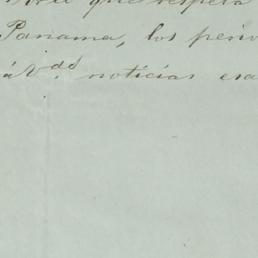 que respeta
Panama, los perió
á Vds. noticias exa